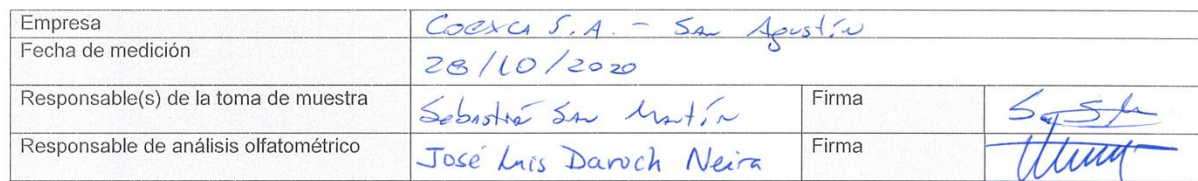 Empresa Coexca S.A. - San Agustín
Fecha de medición 28/10/2020
Responsable(s) de la toma de muestra Sebastián San Martín Firma
Responsable de análisis olfatométrico José Luis Daroch Neira Firma